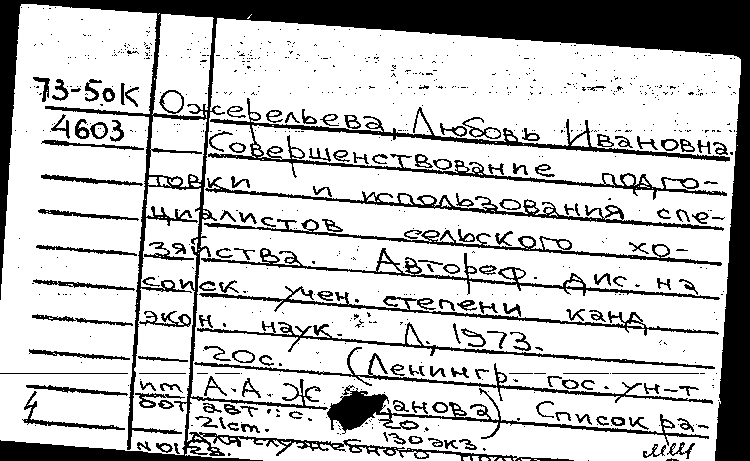 73-50К
4603
Ожерельева, Любовь Ивановна.
Совершенствование подго-
товки и использования спе-
циалистов сельского хо-
зяйства. Автореф. дис. на
соиск. учен. степени канд
экон. наук. Л., 1973.
20с. (Ленингр. гос. ун-т
им А.А. Ж данова). Список ра-
бот авт.: с. 20.
21см. 130 экз.
Для служебного